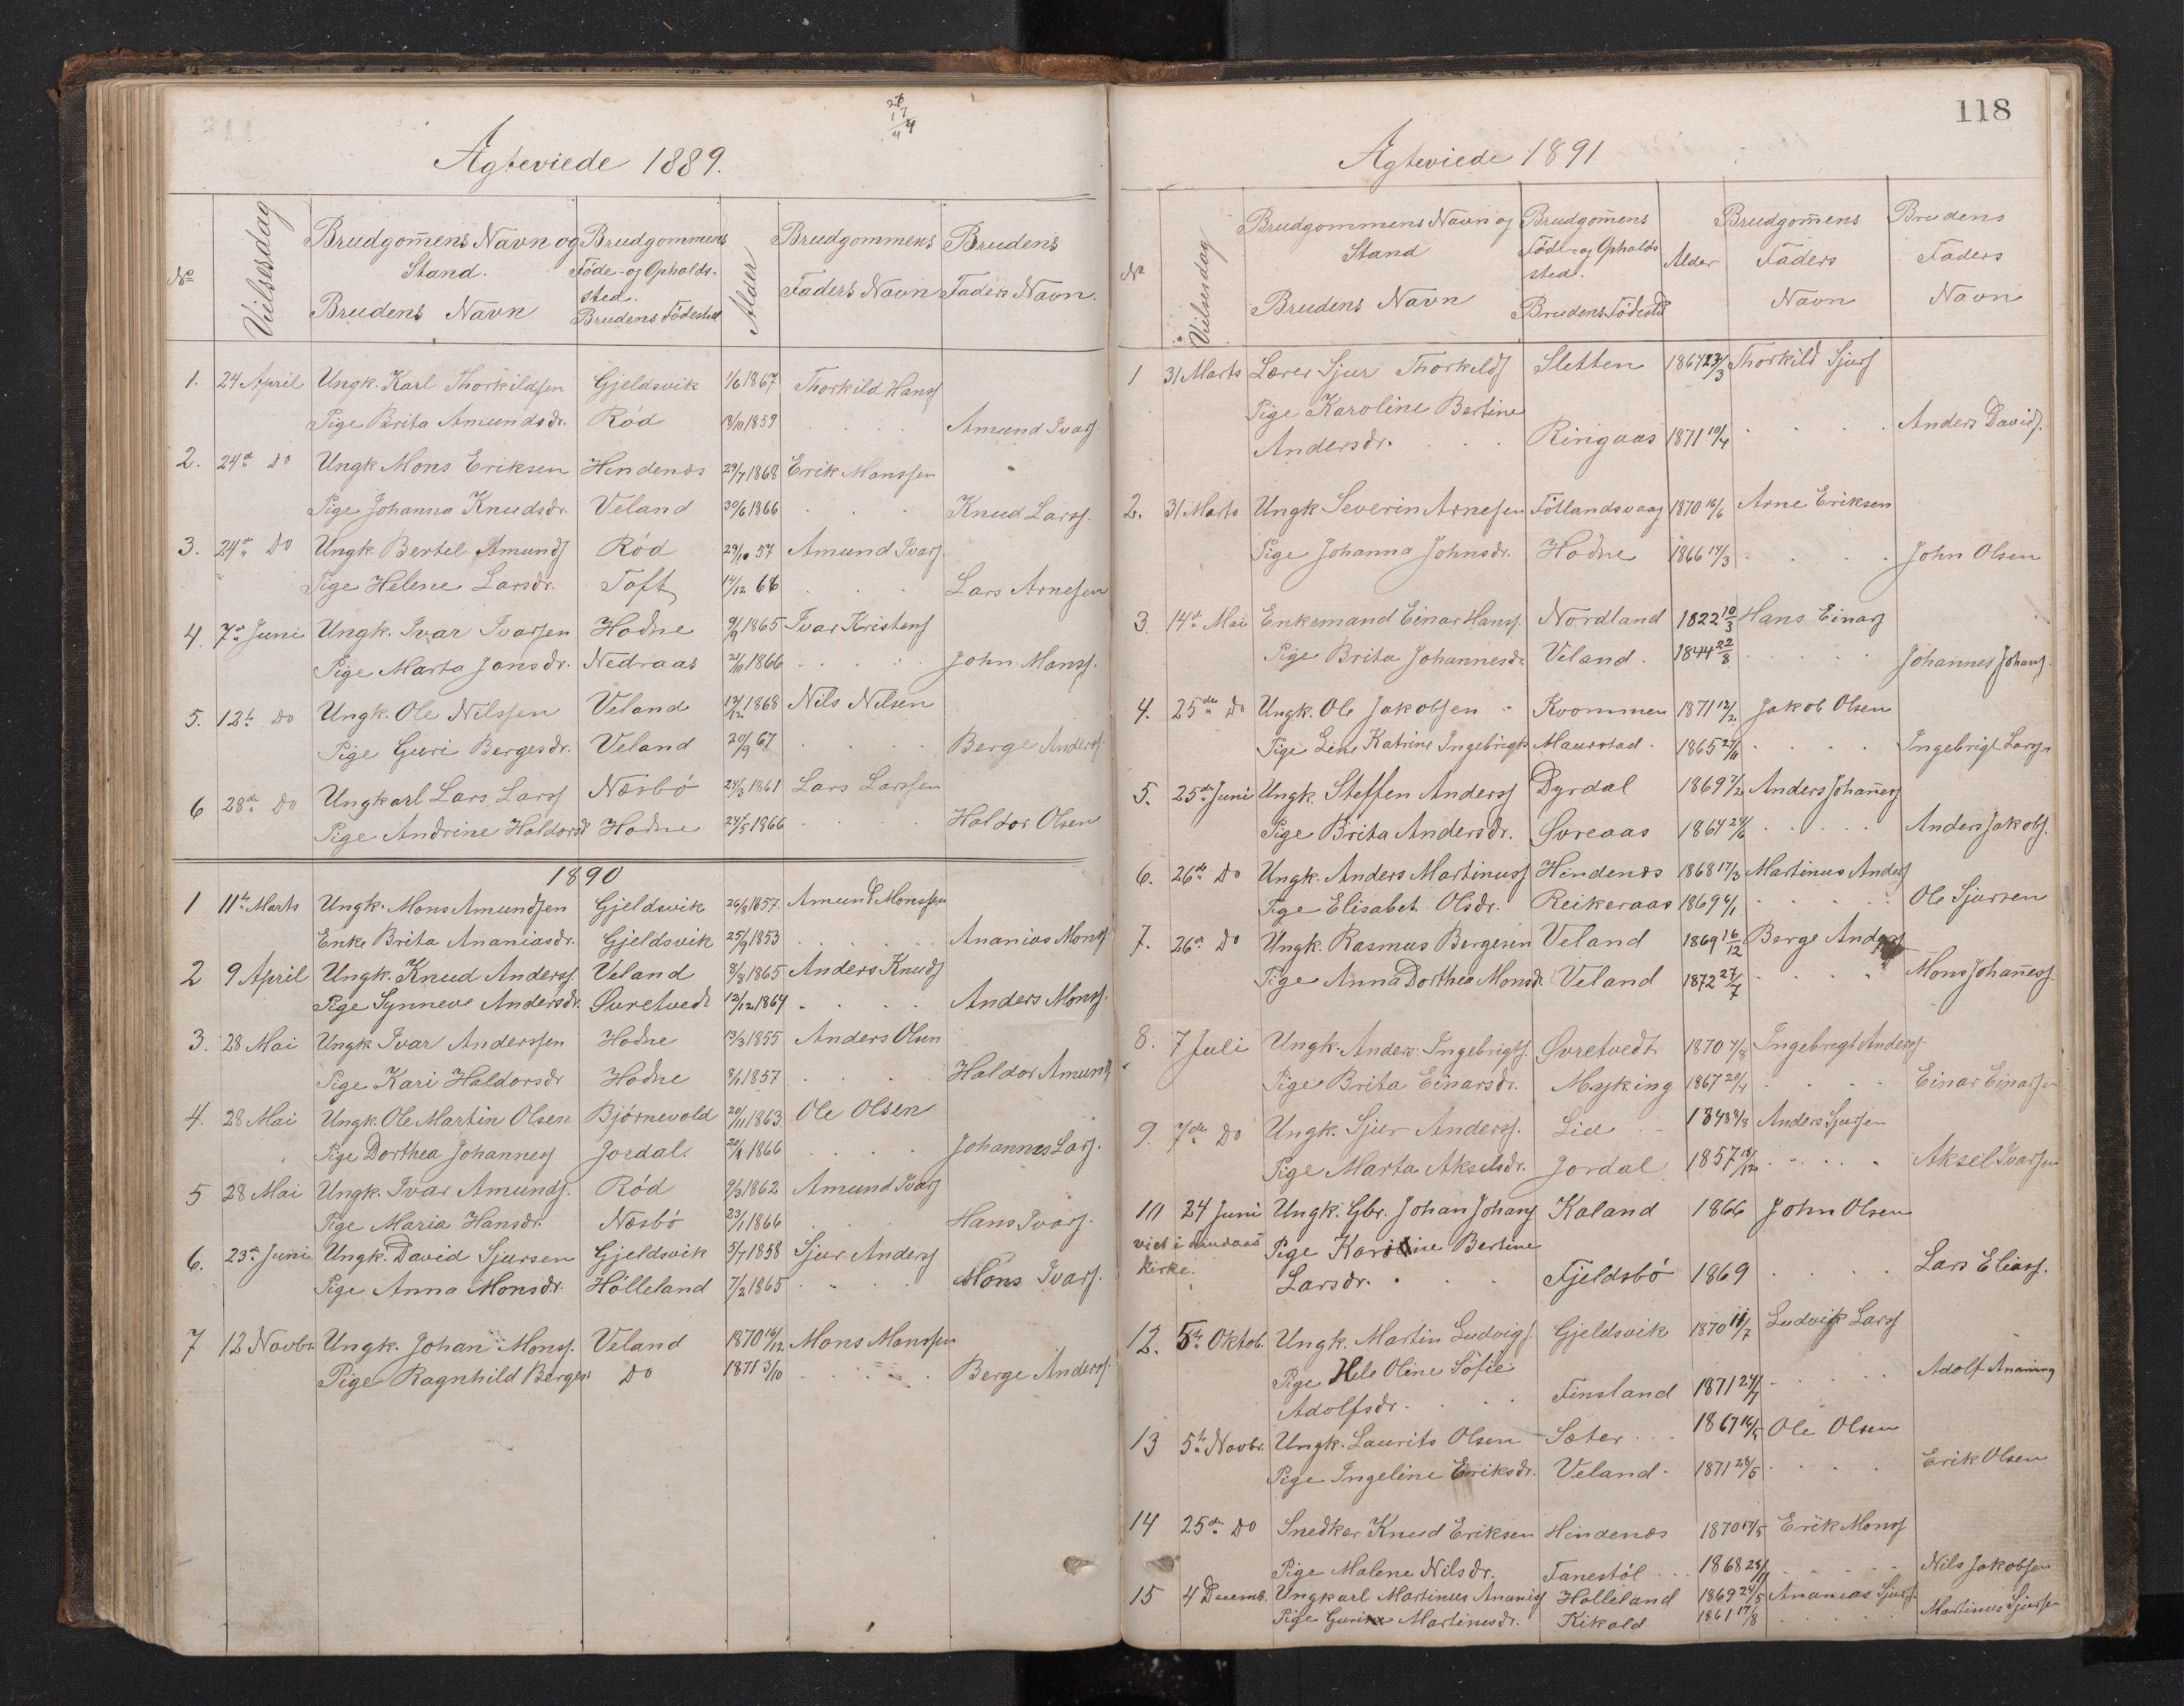 Ægteviede 1889.
No
Vielsesdag
Brudgom̄ens Navn og Stand.
Brudens Navn
Brudgommens Föde- og Opholds-sted.
Brudens Födested
Alder
Brudgommens Faders Navn
Brudens Faders Navn.
1. 24 April Ungk. Karl Thorkildsen Gjeldsvik 1/6 1867 Thorkild Hanss
Pige Brita Amundsdr. Röd 13/10 1859 . . . . Amund Ivars
2. 24de Do Ungk Mons Eriksen Hindenæs 29/7 1868 Erik Monssen
Pige Johanna Knudsdr. Veland 30/6 1866 . . . Knud Larss.
3. 24de Do Ungk Bertel Amunds Röd 29/10 57 Amund Ivars.
Pige Helene Larsdr. Toft 14/12 66 . . . Lars Arnesen
4. 7de Juni Ungk. Ivar Ivarsen Hodne 9/9 1865 Ivar Kristens
Pige Marta Jonsdr. Nedraas 21/11 1866 . . . . John Monss.
5. 12te Do Ungk. Ole Nilssen Veland 14/12 1868 Nils Nilsen
Pige Guri Bergesdr. Veland 20/9 67 . . . . Berge Anderss.
6 28de Do Ungkarl Lars Larss Næsbö 24/3 1861 Lars Larssen
Pige Andrine Haldorsd Hodne 24/5 1866 . . . . Haldor Olsen
1890
1 11te Marts Ungk. Mons Amundsen Gjeldsvik 26/8 1857. Amund Monssen
Enke Brita Ananiasdr. Gjeldsvik 25/9 1853 . . . . Ananias Monss
2 9 April Ungk. Knud Anderss. Veland 8/8 1865 Anders Knuds
Pige Synneve Andersdr. Øvretvedt 12/12 1864 . . . . Anders Monss.
3. 28 Mai Ungk Ivar Anderssen Hodne 13/3 1855 Anders Olsen
Pige Kari Haldorsdr Hodne 8/1 1857 . . . . Haldor Amunds
4. 28 Mai Ungk. Ole Martin Olsen Björnevold 20/11 1863 Ole Olsen
Pige Dorthea Johanness Jordal. 20/1 1866 . . . . Johannes Lars.
5 28 Mai Ungk. Ivar Amunds. Röd 9/3 1862 Amund Ivars
Pige Maria Hansdr. Næsbö 23/1 1866 . . . Hans Ivars.
6. 23de Juni Ungk. David Sjursen Gjeldsvik 5/7 1858 Sjur Anders
Pige Anna Monsdr. Hölleland 7/2 1865 . . . . Mons Ivars.
7 12 Novbr. Ungk. Johan Monss. Veland 1870 16/12 Mons Monssen
Pige Ragnhild Berges Do 1871 3/10 . . . . Berge Anderss.
118
Ægteviede 1891
No
Vielsesdag
Brudgommens Navn og Stand
Brudens Navn
Brudgom̄ens Föde- og Opholds sted.
Brudens Födested
Alder
Brudgom̄ens Faders Navn
Brudens Faders Navn
1 31 Marts Lærer Sjur Thorkilds Sletten 1864 23/3 Thorkild Sjurs
Pige Karoline Bertine
Andersdr. . . . Ringaas 1871 10/4 . . . . Anders Davids.
2. 31 Marts Ungk. Severin Arnesen Fötlandsvaag 1870 16/6 Arne Eriksen
Pige Johanna Johnsdr. Hodne 1866 14/3 . . . . John Olsen
3. 14de Mai Enkemand Einar Hanss. Nordland 1822 10/3 Hans Einars
Pige Brita Johannesdr. Veland. 1844 22/8 . . . . Johannes Johans.
4. 25de Do Ungk. Ole Jakobsen Kvommen 1871 12/2 Jakob Olsen
Pige Line Katrine Ingebrigts Maurstad. 1865 27/11 . . . . Ingebrigt Larsen
5. 25de Juni Ungk. Steffen Anderss Dyrdal 1869 7/2 Anders Johan̄ess
Pige Brita Andersdr. Øvreaas 1864 24/6 . . . . . Anders Jakobs.
6. 26de Do Ungk. Anders Martinuss Hindenæs 1868 17/3 Martinus Anders
Pige Elisabet Olsdr. Reikeraas 1869 6/1 . . . . . Ole Sjursen
7. 26de Do Ungk. Rasmus Bergesen Veland 1869 16/12 Berge Anderss
Pige Anna Dorthea Monsdr. Veland 1872 27/7 . . . . Mons Johan̄ess.
8. 7 Juli Ungk. Anders Ingebrigts. Øvretvedt 1870 7/8 Ingebrigt Anders.
Pige Brita Einarsdr. Myking 1867 20/4 . . . . Einar Einarsen
9. 7de Do Ungk. Sjur Anderss. Lie 1848 8/8 Anders Sjursen
Pige Marta Akselsdr. Jordal 1857 18/12 . . . . . Aksel Ivarsen
10 24 Juni Ungk. Gbr. Johan Johans Kaland 1866 John Olsen
viet i Lindaas kirke. Pige Karoline Bertine
Larsdr. . . . Fjeldsbö 1869 . . . . Lars Eliass.
12. 5te Oktob. Ungk. Martin Ludvigs. Gjeldsvik 1870 11/7 Ludvik Larss
Pige Hele Oline Sofie
Adolfsdr. . . . Finsland 1871 24/1 . . . . . Adolf Ananias
13 5te Novbr. Ungk. Laurits Olsen Sæter . . . 1867 16/5 Ole Olsen
Pige Ingeline Eriksdr. Veland. 1871 28/5 . . . . Erik Olsen
14 25de Do Snedker Knud Eriksen Hindenæs 1870 17/5 Erik Monss
Pige Malene Nilsdr. Fanestöl . . . 1868 28/11 . . . . Nils Jakobsen
15 4 Decemb. Ungkarl Martinus Ananias Hölleland 1869 24/5 Ananias Sjurs.
Pige Guri Martinusdr. Kikald 1861 17/8 . . . . Martinus Sjursen